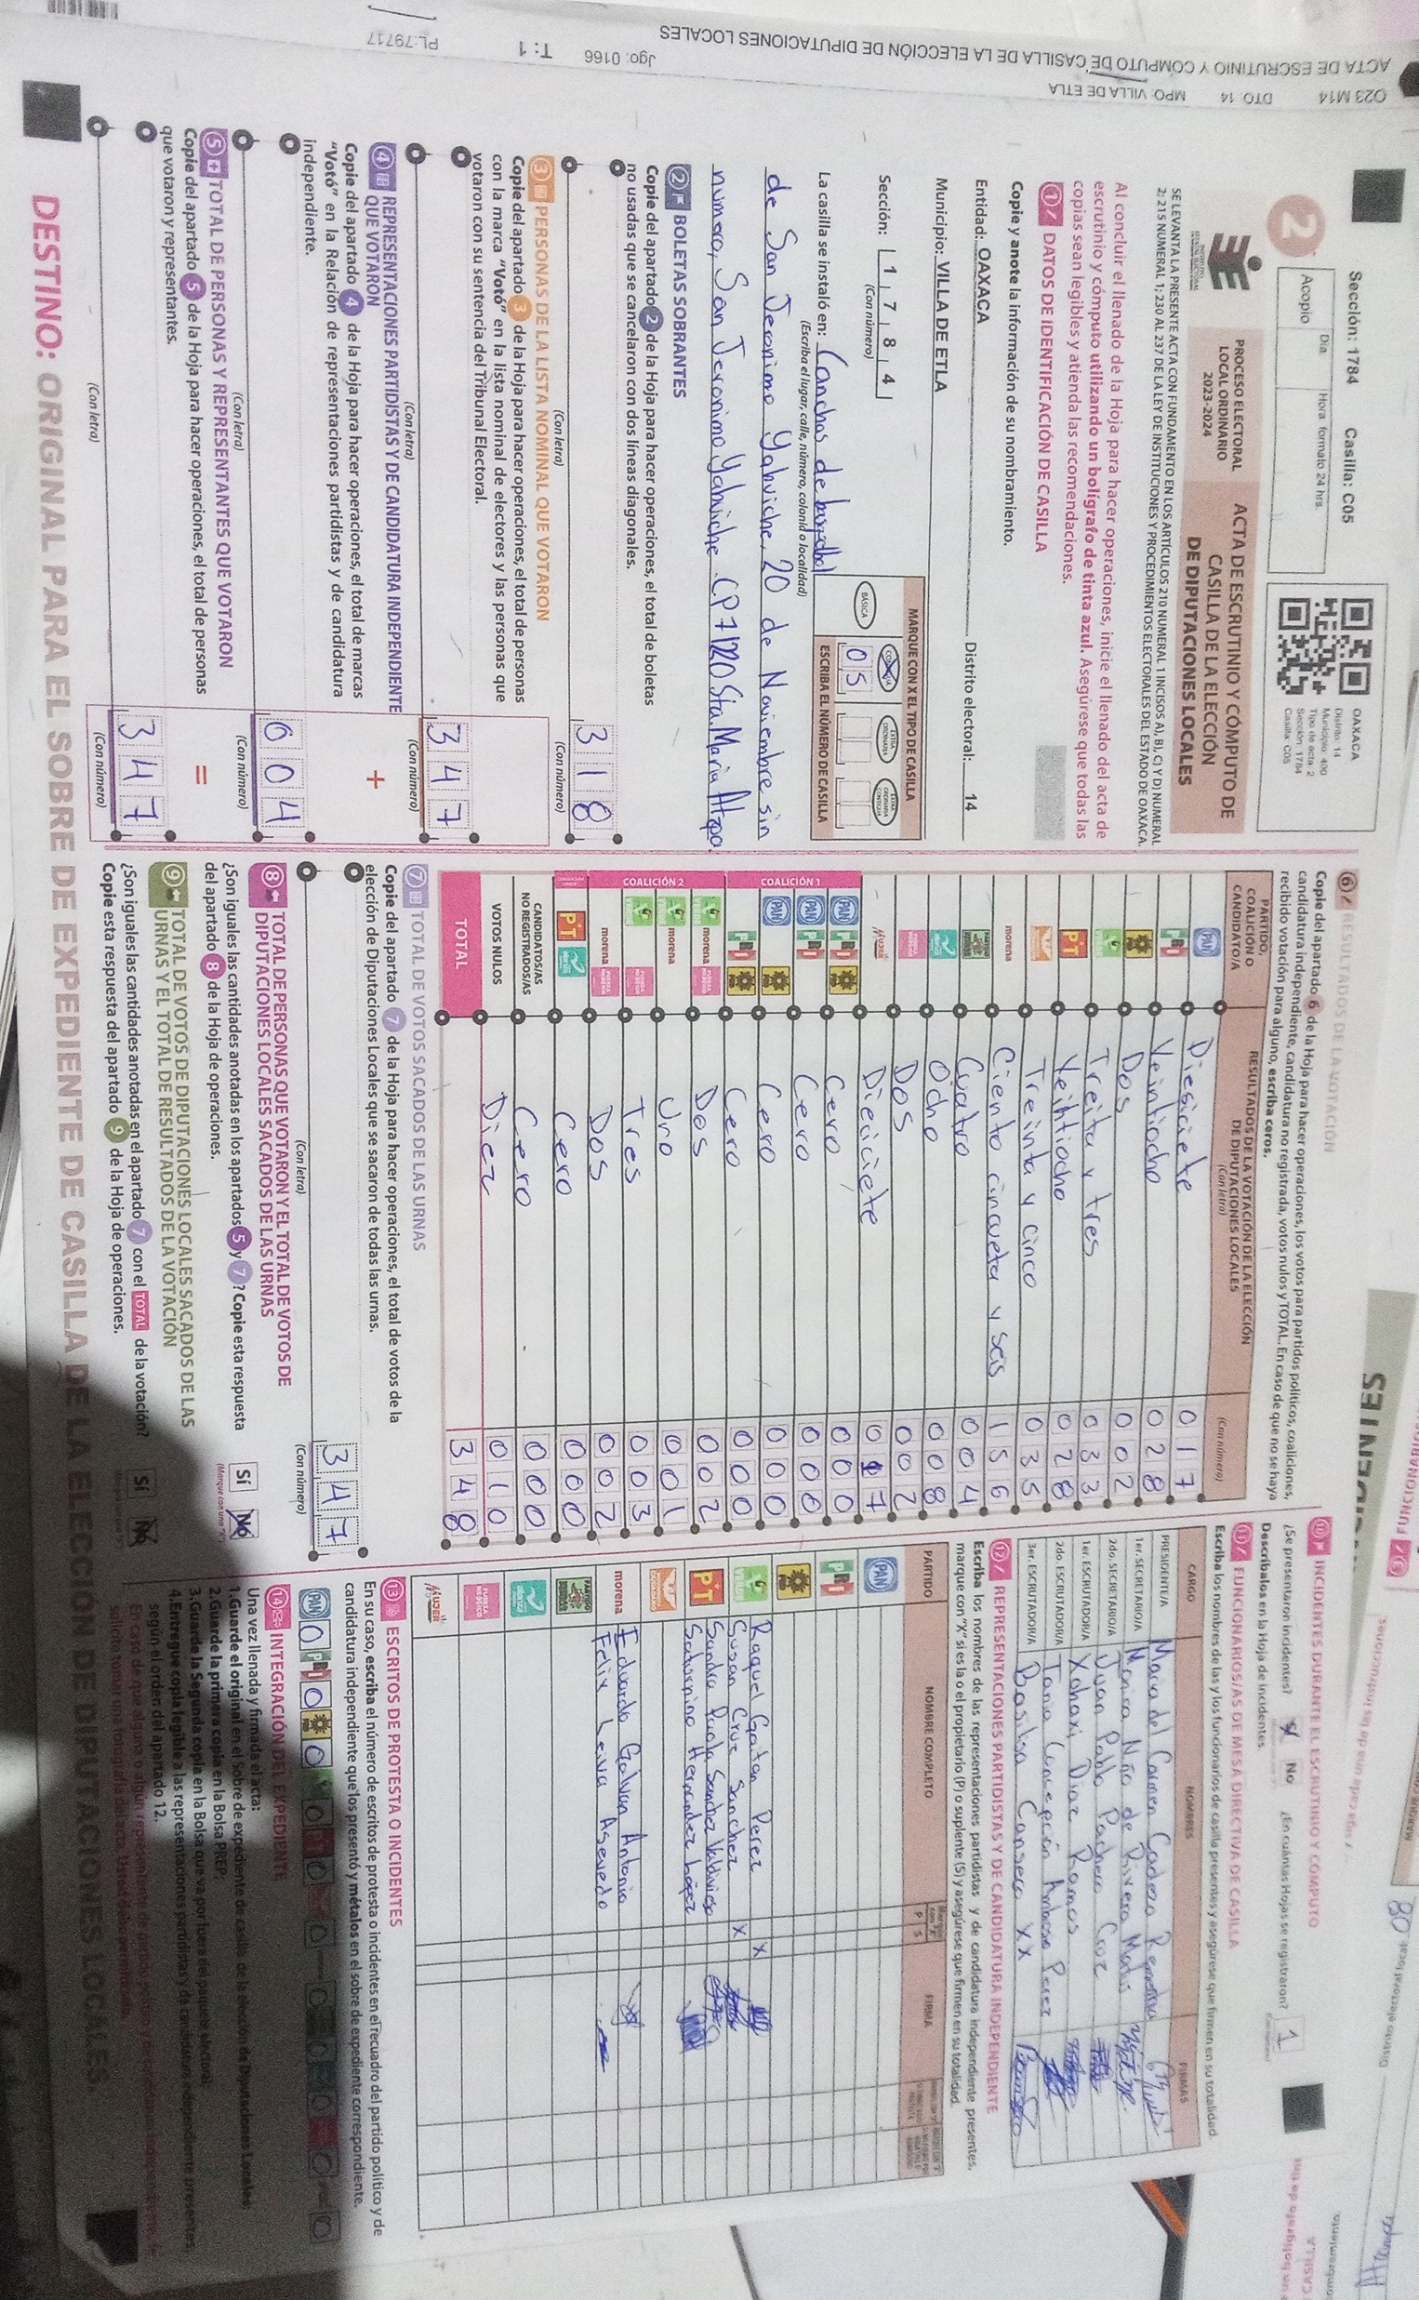 Sección: 1784 Casilla: C05
2
Acopio
Día
Hora: formato 24 hrs.
OAXACA
Distrito: 14
Municipio: 400
Tipo de acta: 2
Sección: 1784
Casilla: C05
PROCESO ELECTORAL
LOCAL ORDINARIO
2023-2024
ACTA DE ESCRUTINIO Y CÓMPUTO DE
CASILLA DE LA ELECCIÓN
DE DIPUTACIONES LOCALES
SE LEVANTA LA PRESENTE ACTA CON FUNDAMENTO EN LOS ARTÍCULOS 210 NUMERAL 1 INCISOS A), B), C) Y D) NUMERAL
2; 215 NUMERAL 1; 230 AL 237 DE LA LEY DE INSTITUCIONES Y PROCEDIMIENTOS ELECTORALES DEL ESTADO DE OAXACA.
Al concluir el llenado de la Hoja para hacer operaciones, inicie el llenado del acta de
escrutinio y cómputo utilizando un bolígrafo de tinta azul. Asegúrese que todas las
copias sean legibles y atienda las recomendaciones.
1 DATOS DE IDENTIFICACIÓN DE CASILLA
Copie y anote la información de su nombramiento.
Entidad: OAXACA Distrito electoral: 14
Municipio: VILLA DE ETLA
Sección: 1 7 8 4
(Con número)
MARQUE CON X EL TIPO DE CASILLA
BÁSICA
0 5
ESCRIBA EL NÚMERO DE CASILLA
La casilla se instaló en: Canchas de basquetbol
(Escriba el lugar, calle, número, colonia o localidad)
de San Jeronimo Yahuiche, 20 de Noviembre sin
numero, San Jeronimo Yahuiche. CP 71220 Sta. Maria Atzpa.
2 BOLETAS SOBRANTES
Copie del apartado 2 de la Hoja para hacer operaciones, el total de boletas
no usadas que se cancelaron con dos líneas diagonales.
3 1 8
(Con letra) (Con número)
3 PERSONAS DE LA LISTA NOMINAL QUE VOTARON
Copie del apartado 3 de la Hoja para hacer operaciones, el total de personas
con la marca "Votó" en la lista nominal de electores y las personas que
votaron con su sentencia del Tribunal Electoral.
3 4 7
(Con letra) (Con número)
4 REPRESENTACIONES PARTIDISTAS Y DE CANDIDATURA INDEPENDIENTE
QUE VOTARON
+
Copie del apartado 4 de la Hoja para hacer operaciones, el total de marcas
"Votó" en la Relación de representaciones partidistas y de candidatura
independiente.
0 0 4
(Con letra) (Con número)
5 TOTAL DE PERSONAS Y REPRESENTANTES QUE VOTARON
=
Copie del apartado 5 de la Hoja para hacer operaciones, el total de personas
que votaron y representantes.
3 4 7
(Con letra) (Con número)
6 RESULTADOS DE LA VOTACIÓN
Copie del apartado 6 de la Hoja para hacer operaciones, los votos para partidos políticos, coaliciones,
candidatura independiente, candidatura no registrada, votos nulos y TOTAL. En caso de que no se haya
recibido votación para alguno, escriba ceros.
PARTIDO,
COALICIÓN O
CANDIDATO/A
RESULTADOS DE LA VOTACIÓN DE LA ELECCIÓN
DE DIPUTACIONES LOCALES
(Con letra)
(Con número)
PAN Diesiciete 0 1 7
PRI Veintiocho 0 2 8
Dos 0 0 2
Treita y tres 0 3 3
PT Veihtiocho 0 2 8
Treinta y cinco 0 3 5
morena Ciento cincueta y seis 1 5 6
Cuatro 0 0 4
Ocho 0 0 8
Dos 0 0 2
MUJER Dieciciete 0 1 7
COALICIÓN 1
PAN PRI Cero 0 0 0
PAN PRI Cero 0 0 0
PAN Cero 0 0 0
PRI Cero 0 0 0
COALICIÓN 2
morena Dos 0 0 2
morena Uno 0 0 1
Tres 0 0 3
morena Dos 0 0 2
PT Cero 0 0 0
CANDIDATOS/AS
NO REGISTRADOS/AS Cero 0 0 0
VOTOS NULOS Diez 0 1 0
TOTAL 3 4 8
7 TOTAL DE VOTOS SACADOS DE LAS URNAS
Copie del apartado 7 de la Hoja para hacer operaciones, el total de votos de la
elección de Diputaciones Locales que se sacaron de todas las urnas.
3 4 7
(Con letra) (Con número)
8 TOTAL DE PERSONAS QUE VOTARON Y EL TOTAL DE VOTOS DE
DIPUTACIONES LOCALES SACADOS DE LAS URNAS
¿Son iguales las cantidades anotadas en los apartados 5 y 7? Copie esta respuesta
del apartado 8 de la Hoja de operaciones.
Sí No
9 TOTAL DE VOTOS DE DIPUTACIONES LOCALES SACADOS DE LAS
URNAS Y EL TOTAL DE RESULTADOS DE LA VOTACIÓN
¿Son iguales las cantidades anotadas en el apartado 7 con el TOTAL de la votación?
Copie esta respuesta del apartado 9 de la Hoja de operaciones.
Sí No
10 INCIDENTES DURANTE EL ESCRUTINIO Y CÓMPUTO
¿Se presentaron incidentes? Sí No ¿En cuántas Hojas se registraron? 1
Descríbalos en la Hoja de incidentes.
11 FUNCIONARIOS/AS DE MESA DIRECTIVA DE CASILLA
Escriba los nombres de las y los funcionarios de casilla presentes y asegúrese que firmen en su totalidad.
CARGO NOMBRES FIRMAS
PRESIDENTE/A Maria del Carmen
1er. SECRETARIO/A
2do. SECRETARIO/A Juan Pablo Pacheco Cruz
1er. ESCRUTADOR/A Xohari Diaz Ramos
2do. ESCRUTADOR/A Tania Concepción Ambrosio Perez
3er. ESCRUTADOR/A Basilisa Canseco XX
12 REPRESENTACIONES PARTIDISTAS Y DE CANDIDATURA INDEPENDIENTE
Escriba los nombres de las representaciones partidistas y de candidatura independiente presentes,
marque con "X" si es la o el propietario (P) o suplente (S) y asegúrese que firmen en su totalidad.
PARTIDO NOMBRE COMPLETO P S FIRMA
PAN
PRI
Raquel Gaitan Perez X
Susan Cruz Sanchez X
PT Sandra Paola Santos Valdivieso
Saturnino Hernandez López
morena Eduardo Galvan Antonio
Felix Leiva Asevedo
MUJER
13 ESCRITOS DE PROTESTA O INCIDENTES
En su caso, escriba el número de escritos de protesta o incidentes en el recuadro del partido político y de
candidatura independiente que los presentó y métalos en el sobre de expediente correspondiente.
14 INTEGRACIÓN DEL EXPEDIENTE
Una vez llenada y firmada el acta:
1. Guarde el original en el Sobre de expediente de casilla de la elección de Diputaciones Locales.
2. Guarde la primera copia en la Bolsa PREP.
3. Guarde la segunda copia en la Bolsa que va por fuera del paquete electoral.
4. Entregue copia legible a las representaciones partidistas y de candidatura independiente presentes,
según el orden del apartado 12.
DESTINO: ORIGINAL PARA EL SOBRE DE EXPEDIENTE DE CASILLA DE LA ELECCIÓN DE DIPUTACIONES LOCALES
O23 M14 DTO. 14 MPO. VILLA DE ETLA
ACTA DE ESCRUTINIO Y CÓMPUTO DE CASILLA DE LA ELECCIÓN DE DIPUTACIONES LOCALES
Jgo. 0166 T: 1 PL:79717